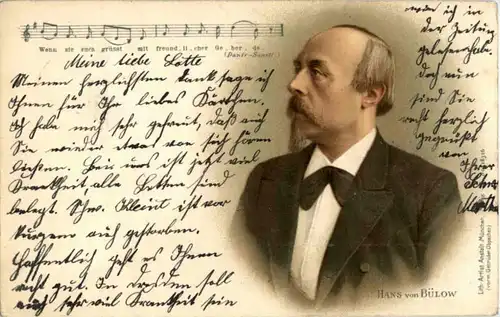 Wenn sie euch grüsst mit freund_li_cher Ge_ber_de
(Dante-Sonett)
Meine liebe Lotte
Meinen herzlichsten Dank sage ich
Ihnen für Ihr liebes Kärtchen.
Ich habe mich sehr gefreut, daß auch
Sie wieder etwas von sich hören
ließen. Bei uns ist jetzt viel
Krankheit alle Betten sind
belegt. Schw. ist vor
kurzem auch gestorben.
Hoffentlich geht es Ihnen
recht gut. In Dresden soll
auch sehr viel Krankheit sein
ich in
der Zeitung
gelesen habe
Sie
recht herzlich
gegrüßt
von
Ihrer
Martha
HANS von BÜLOW
Lith.-Artist. Anstalt München
(vorm. Gebrüder Obpacher)